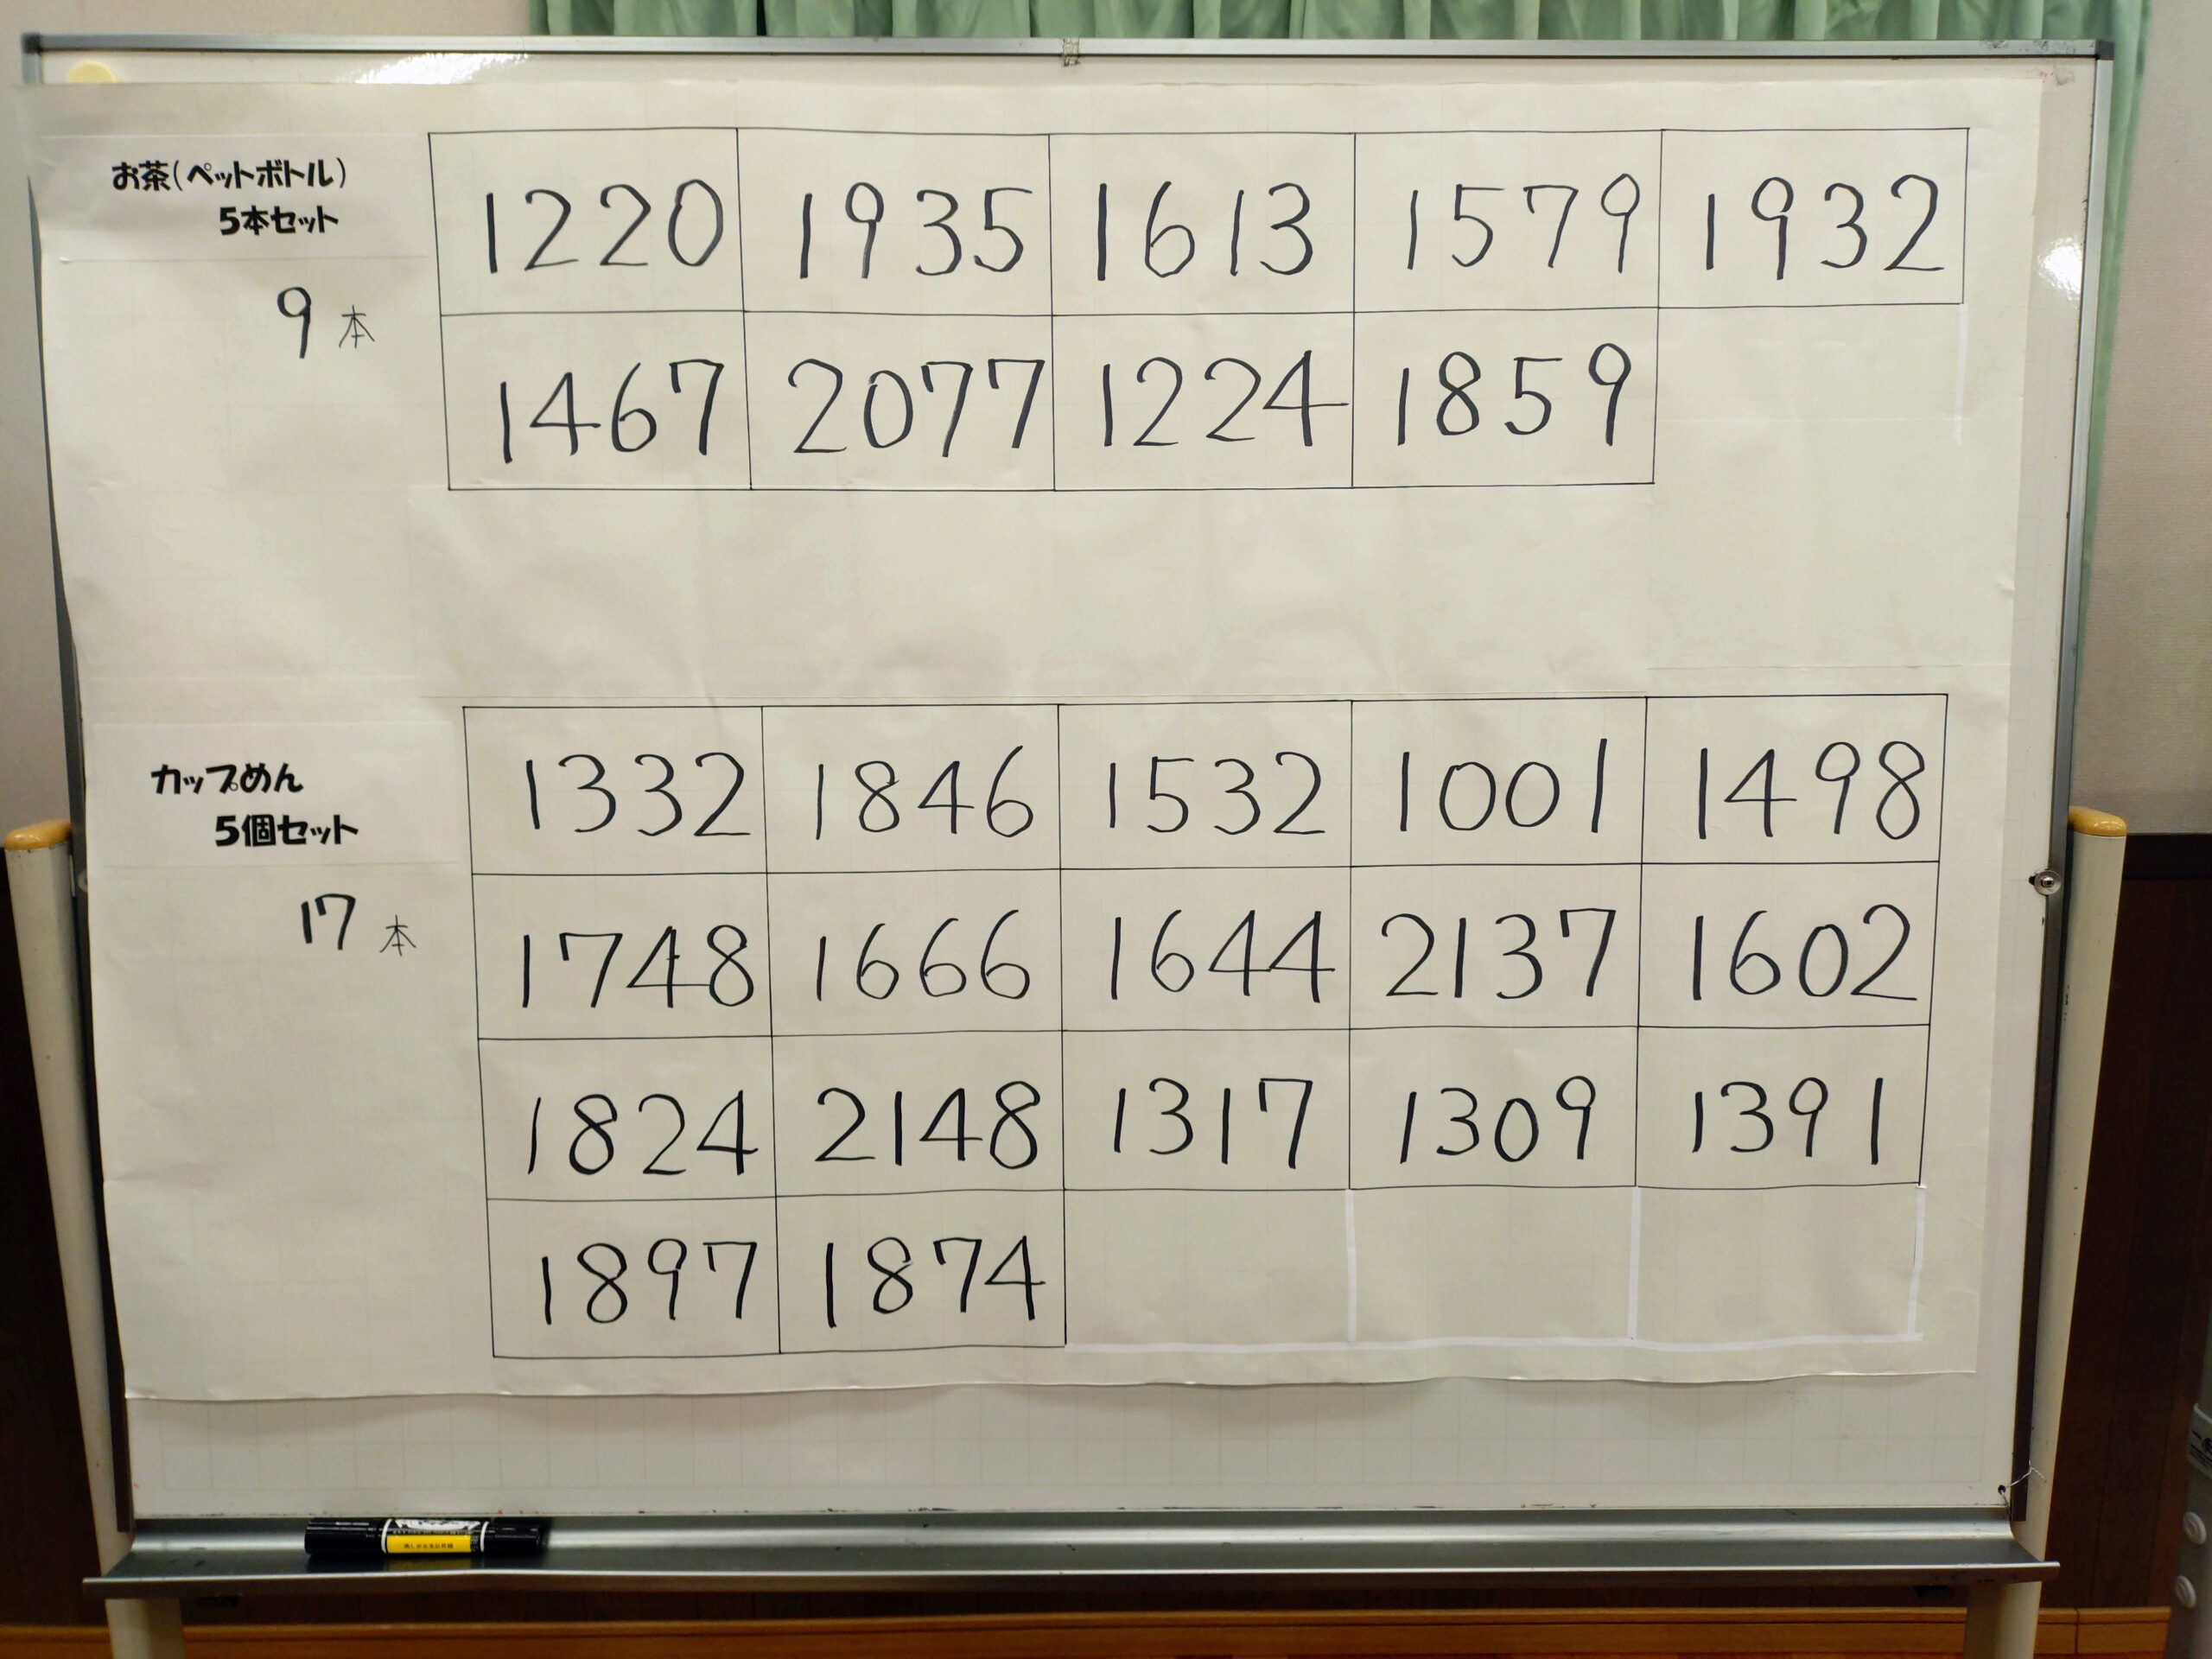 お茶(ペットボトル)
5本セット
9本
1220 1935 1613 1579 1932
1467 2077 1224 1859
カップめん
5個セット
17本
1332 1846 1532 1001 1498
1748 1666 1644 2137 1602
1824 2148 1317 1309 1391
1897 1874